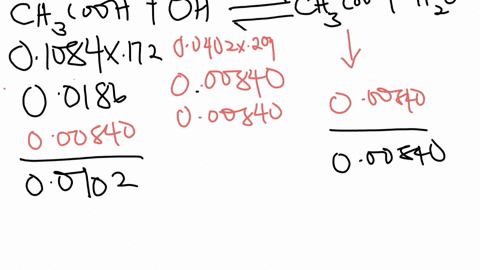 CH3COOH + OH ⇌ CH3COO + H2O
0.1084x.172 0.0402x.209
0.0186 0.00840
0.00840 0.00840 0.00840
0.0102 0.00840